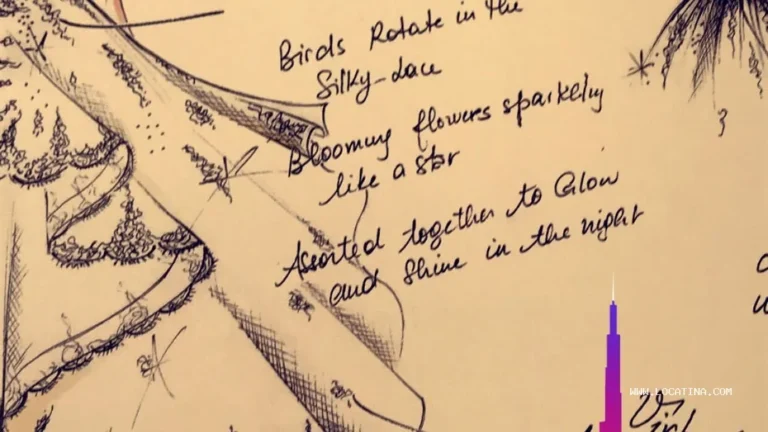 Birds Rotate in the
Silky-lace
Blooming flowers sparkelny
like a star
Assorted together to Glow
and Shine in the night
WWW.LOCATINA.COM